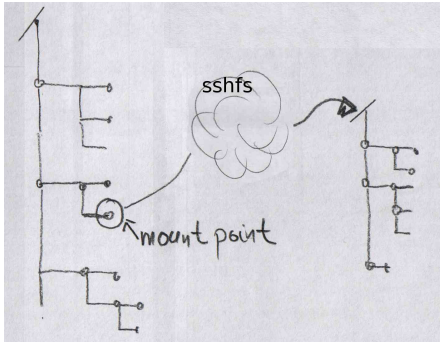 sshfs
mount point